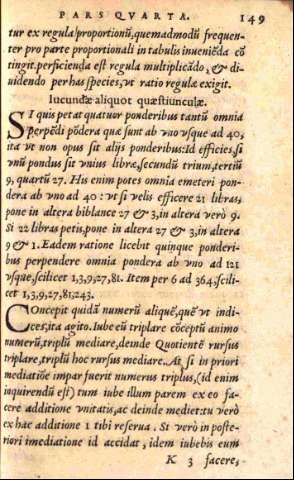 PARS QVARTA. 149
tur ex regula proportionũ, quemadmodũ frequen-
ter pro parte proportionali in tabulis inueniẽda cõ
tingit. perficienda est regula multiplicãdo, & di-
uidendo per has species, vt ratio regulæ exigit.
Iucundæ aliquot quæstiunculæ.
SI quis petat quatuor ponderibus tantũ omnia
perpẽdi põdera quæ sunt ab vno vsque ad 40,
ita vt non opus sit alijs ponderibus: Id efficies, si
vnũ pondus sit vnius libræ, secundũ trium, tertiũ
9, quartũ 27. His enim potes omnia emeteri pon-
dera ab vno ad 40: vt si velis efficere 21 libras,
pone in altera biblance 27 & 3, in altera verò 9.
Si 22 libras petis, pone in altera 27 & 3, in altera
9 & 1. Eadem ratione licebit quinque ponderi-
bus perpendere omnia pondera ab vno ad 121
vsque, scilicet 1,3,9,27,81. Item per 6 ad 364, scili-
cet 1,3,9,27,81,243.
COncepit quidã numerũ aliquẽ, quẽ vt indi-
ces, ita agito. Iube eũ triplare cõceptũ animo
numerũ, triplũ mediare, deinde Quotientẽ rursus
triplare, triplũ hoc rursus mediare. At si in priori
mediatiõe impar fuerit numerus triplus, (id enim
inquirendũ est) tum iube illum parem ex eo fa-
cere additione vnitatis, ac deinde mediet: tu verò
ex hac additione 1 tibi reserua. Si verò in poste-
riori imediatione id accidat, idem iubebis eum
K 3 facere,